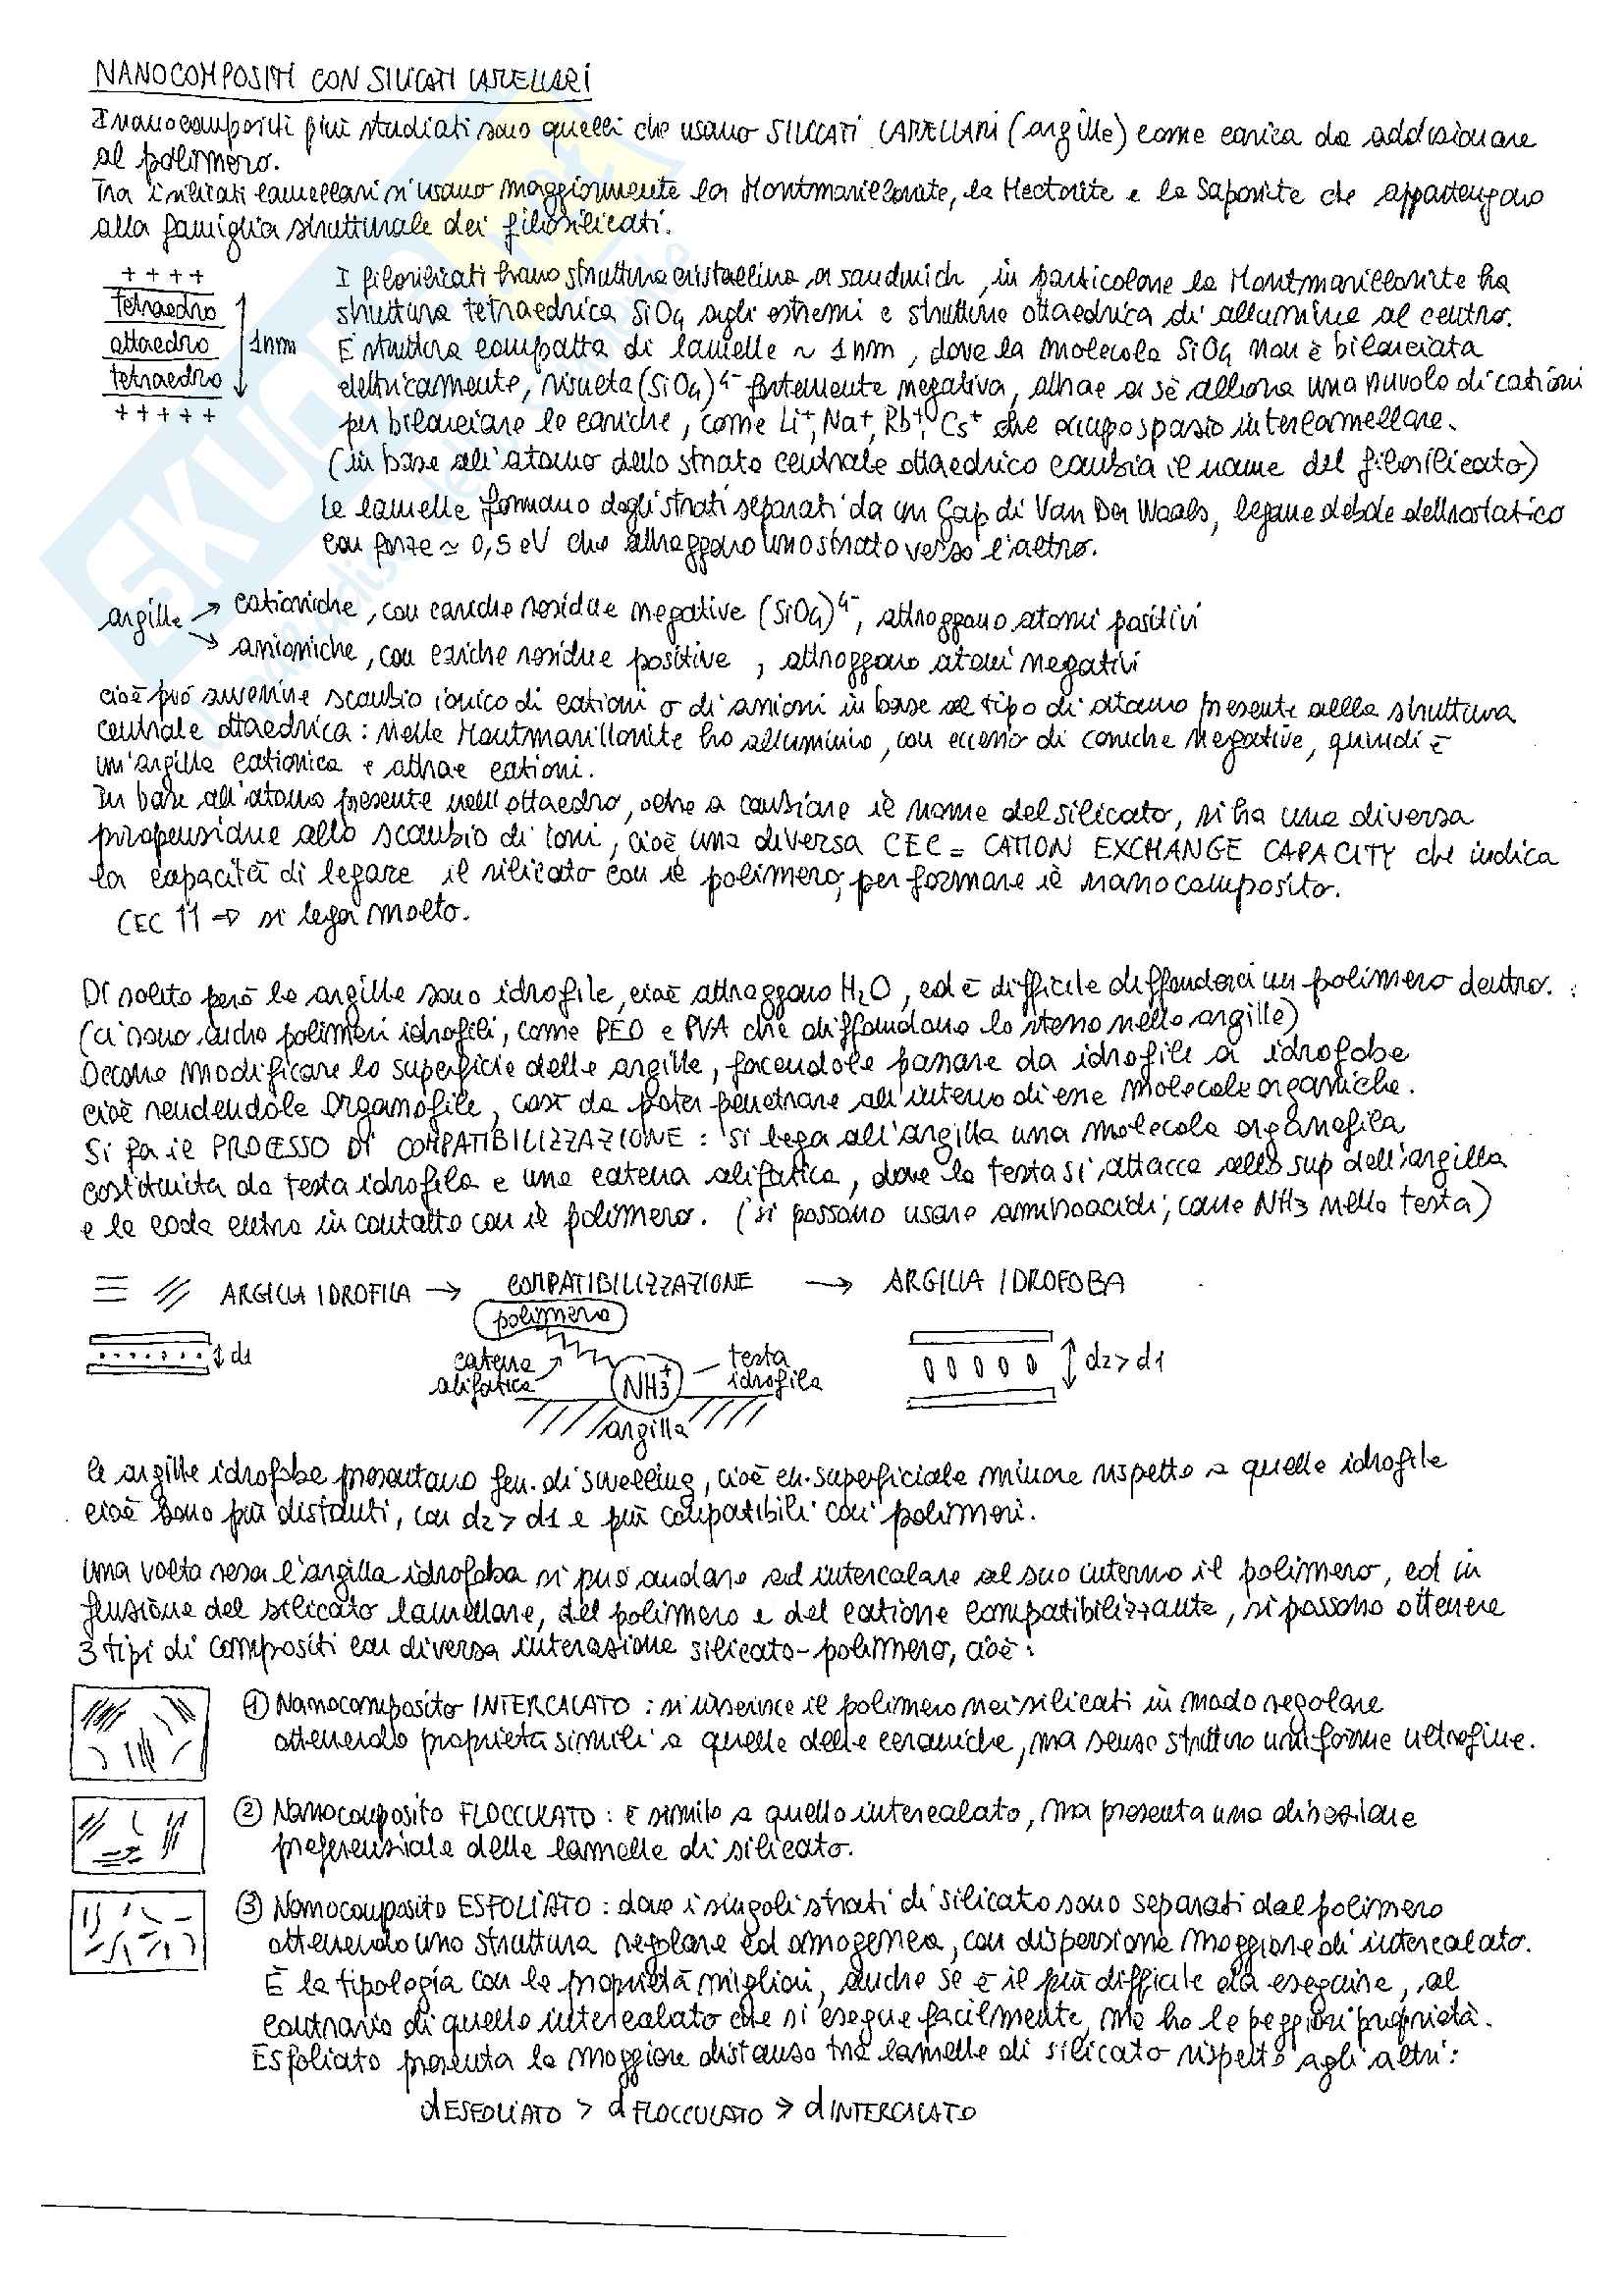 NANOCOMPOSITI CON SILICATI LAMELLARI
I nanocompositi più studiati sono quelli che usano SILICATI LAMELLARI (argille) come carica da addizionare
al polimero.
Tra i silicati lamellari si usano maggiormente la Montmorillonite, la Hectorite e la Saponite che appartengono
alla famiglia strutturale dei fillosilicati.
++++
tetraedro
ottaedro
tetraedro
+++++
1nm
I fillosilicati hanno struttura cristallina a sandwich, in particolare la Montmorillonite ha
struttura tetraedrica SiO4 agli estremi e struttura ottaedrica di allumina al centro.
È struttura compatta di lamelle ~ 1nm, dove la molecola SiO4 non è bilanciata
elettricamente, risulta (SiO4)4- fortemente negativa, attrae a sè allora una nuvola di cationi
per bilanciare le cariche, come Li+, Na+, Rb+, Cs+ che occupo spazio interlamellare.
(in base all'atomo dello strato centrale ottaedrico cambia il nome del fillosilicato)
Le lamelle formano degli strati separati da un Gap di Van Der Waals, legame debole elettrostatico
con forze ≃ 0,5 eV che attraggono uno strato verso l'altro.
argille → cationiche, con cariche residue negative (SiO4)4-, attraggono atomi positivi
→ anioniche, con cariche residue positive, attraggono atomi negativi
cioè può avvenire scambio ionico di cationi o di anioni in base al tipo di atomo presente nella struttura
centrale ottaedrica: nella Montmorillonite ho alluminio, con eccesso di cariche negative, quindi è
un'argilla cationica e attrae cationi.
In base all'atomo presente nell'ottaedro, oltre a cambiare il nome del silicato, si ha una diversa
propensione allo scambio di ioni, cioè una diversa CEC = CATION EXCHANGE CAPACITY che indica
la capacità di legare il silicato con il polimero, per formare il nanocomposito.
CEC ↑↑ → si lega molto.
Di solito però le argille sono idrofile, cioè attraggono H2O, ed è difficile diffonderci un polimero dentro.
(ci sono anche polimeri idrofili, come PEO e PVA che diffondono lo stesso nelle argille)
Occorre modificare la superficie delle argille, facendole passare da idrofile a idrofobe
cioè rendendole organofile, così da poter penetrare all'interno di esse molecole organiche.
Si fa il PROCESSO DI COMPATIBILIZZAZIONE: si lega all'argilla una molecola organofila
costituita da testa idrofila e una catena alifatica, dove la testa si attacca alla sup dell'argilla
e la coda entra in contatto con il polimero. (si possono usare aminoacidi, come NH3 nella testa)
ARGILLA IDROFILA → COMPATIBILIZZAZIONE → ARGILLA IDROFOBA
polimero
d1
catena
alifatica
NH3+
testa
idrofila
argilla
d2 > d1
Le argille idrofobe presentano fen. di swelling, cioè en. superficiale minore rispetto a quelle idrofile
cioè sono più distanti, con d2 > d1 e più compatibili con polimeri.
Una volta resa l'argilla idrofoba si può andare ad intercalare al suo interno il polimero, ed in
funzione del silicato lamellare, del polimero e del catione compatibilizzante, si possono ottenere
3 tipi di compositi con diversa interazione silicato-polimero, cioè:
① Nanocomposito INTERCALATO: si inserisce il polimero nei silicati in modo regolare
ottenendo proprietà simili a quelle delle ceramiche, ma senza struttura uniforme ultrafine.
② Nanocomposito FLOCCULATO: È simile a quello intercalato, ma presenta una direzione
preferenziale delle lamelle di silicato.
③ Nanocomposito ESFOLIATO: dove i singoli strati di silicato sono separati dal polimero
ottenendo una struttura regolare ed omogenea, con dispersione maggiore di intercalato.
È la tipologia con le proprietà migliori, anche se è il più difficile da eseguire, al
contrario di quello intercalato che si esegue facilmente, ma ha le peggiori proprietà.
Esfoliato presenta la maggiore distanza tra lamelle di silicato rispetto agli altri:
dESFOLIATO > dFLOCCULATO > dINTERCALATO